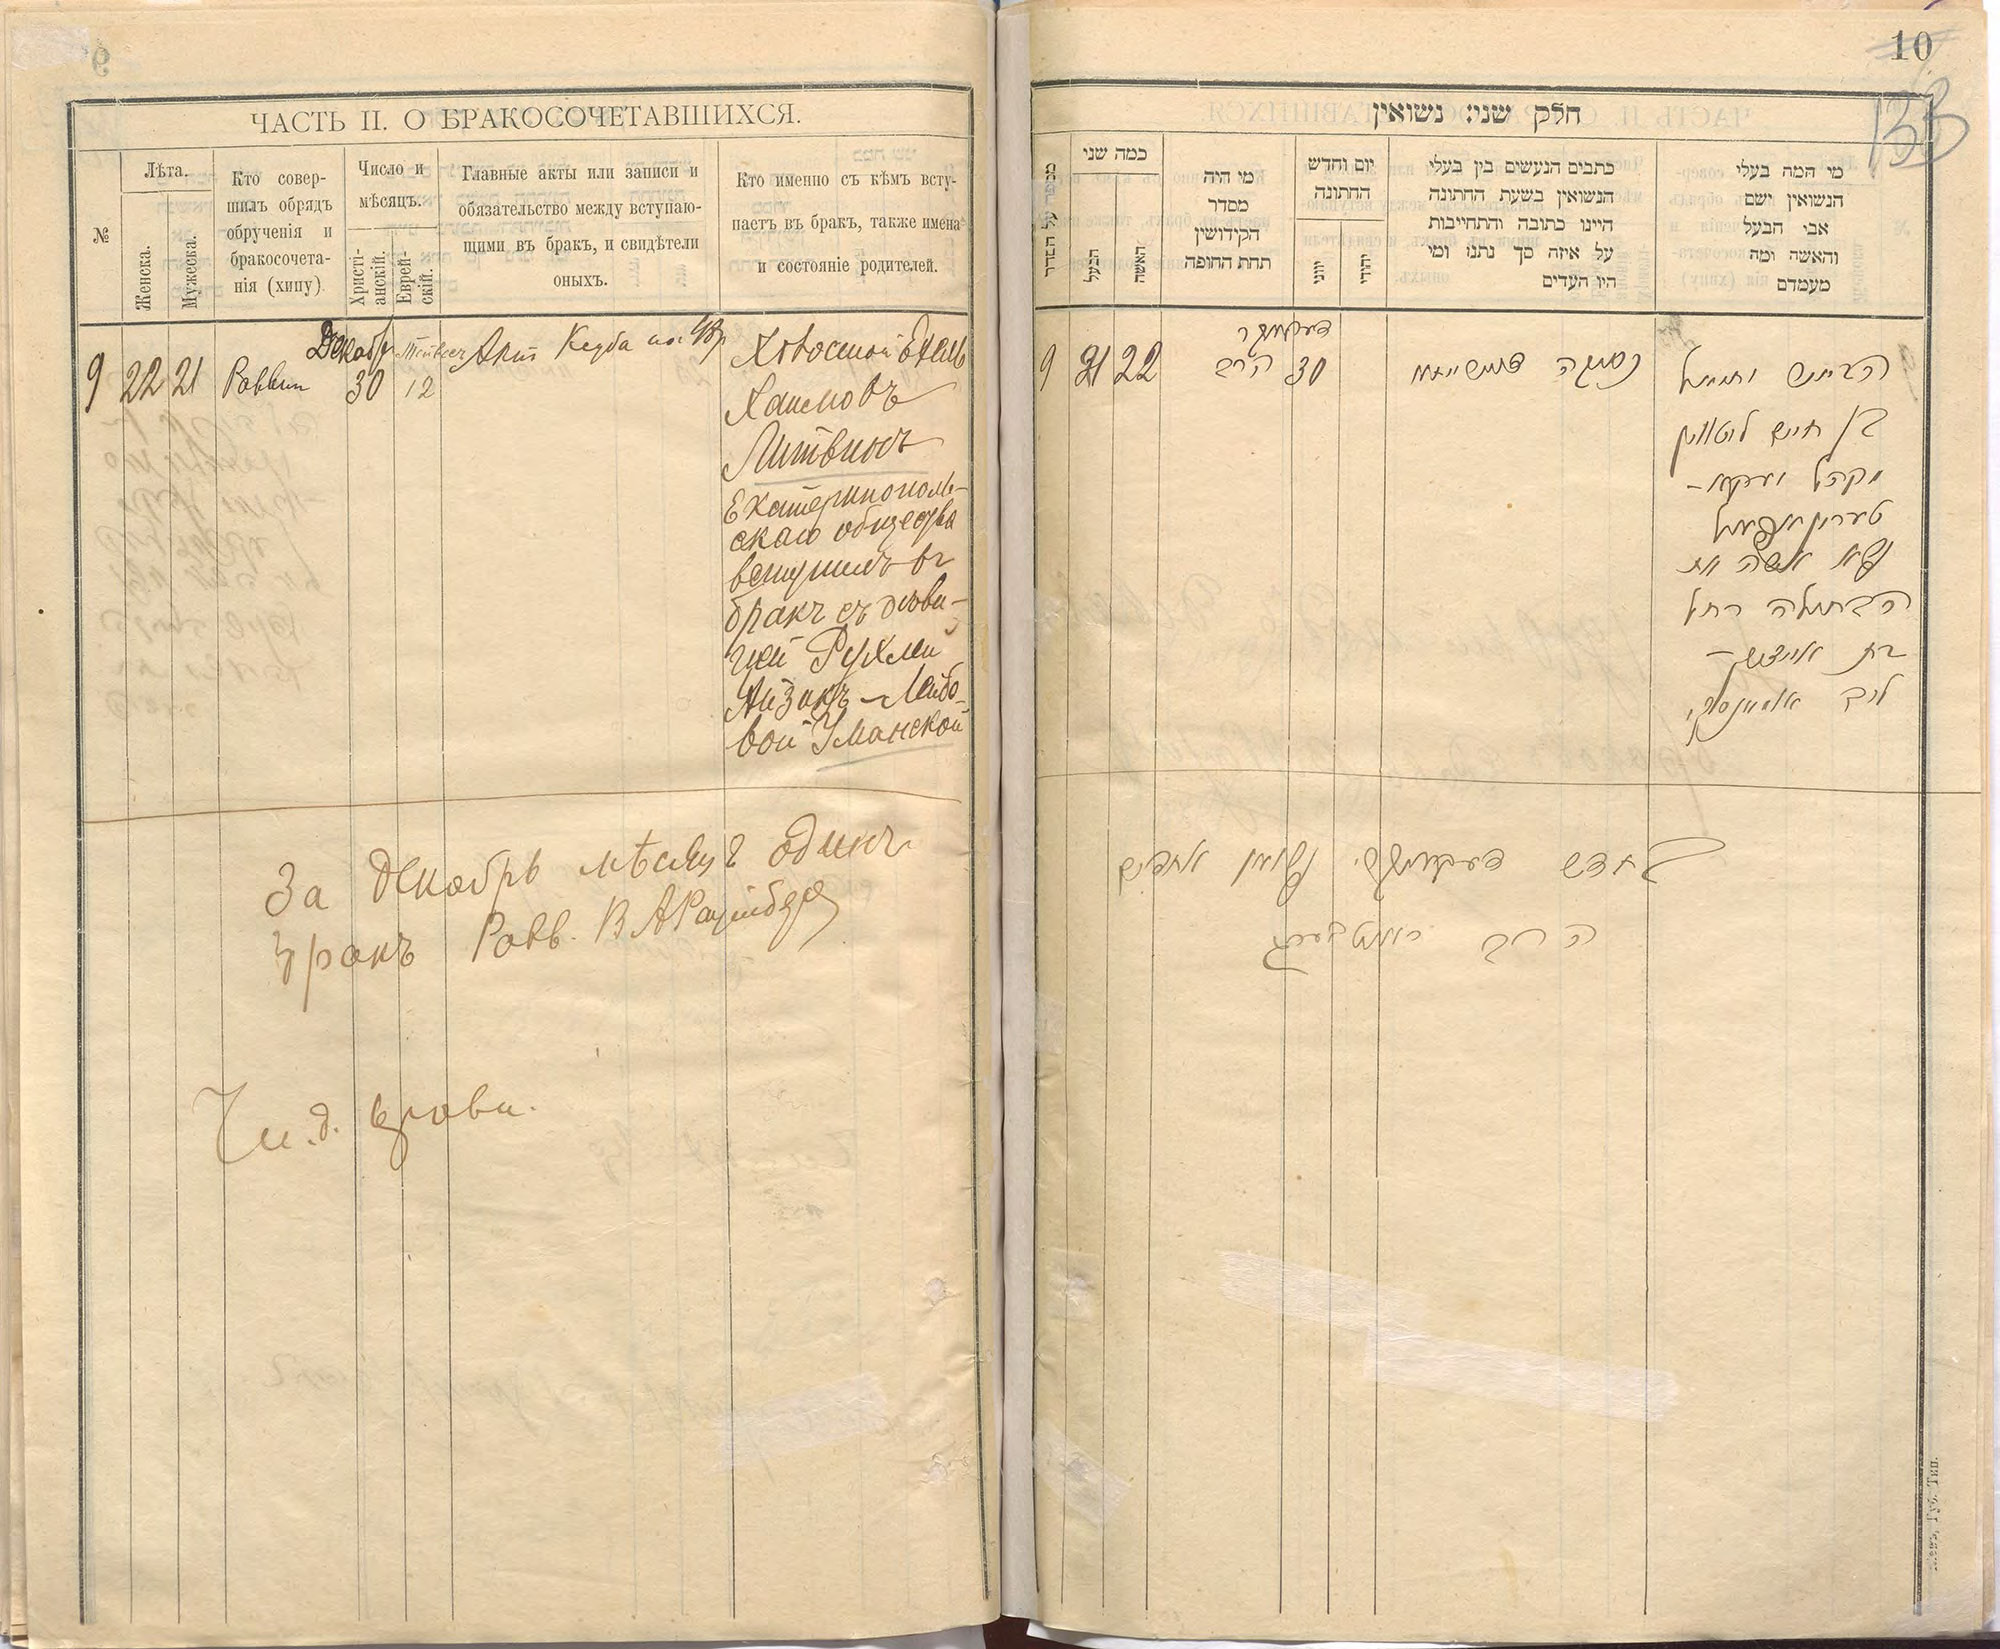 ЧАСТЬ II. О БРАКОСОЧЕТАВШИХСЯ.
№
Лѣта.
Женска.
Мужеска.
Кто совер-
шилъ обрядъ
обрученія и
бракосочета-
нія (хипу)
Число и
мѣсяцъ.
Христі-
анскій.
Еврей-
скій.
Главные акты или записи и
обязательство между вступаю-
щими въ бракъ, и свидѣтели
оныхъ.
Кто именно съ кѣмъ всту-
паетъ въ бракъ, также имена
и состояніе родителей.
9
22
21
Раввин
Декабр
30
12
Актъ
Холостой
Хаимовъ
Литвинъ
Екатеринополь-
скаго общества
вступилъ въ
бракъ съ дѣви-
цей Рухлей
Айзикъ-Лейбо-
вой Уманской
За Декабрь мѣсяцъ одинъ
бракъ Равв.
10
133
חלק שני: נשואין
מספר על הסדר
כמה שני
הבעל
האשה
מי היה
מסדר
הקידושין
תחת החופה
יום וחדש
החתונה
יווני
יהודי
כתבים הנעשים בין בעלי
הנשואין בשעת החתונה
היינו כתובה והתחייבות
על איזה סך נתנו ומי
היו העדים
מי המה בעלי
הנשואין ושם
אבי הבעל
והאשה ומה
מעמדם
9
21
22
הרב
30
בן חיים ליטווין
נשא אשה את
הבתולה רחל
בת אייזיק-
ליב אומאנסקי
לחדש
הרב
Губ. Тип.